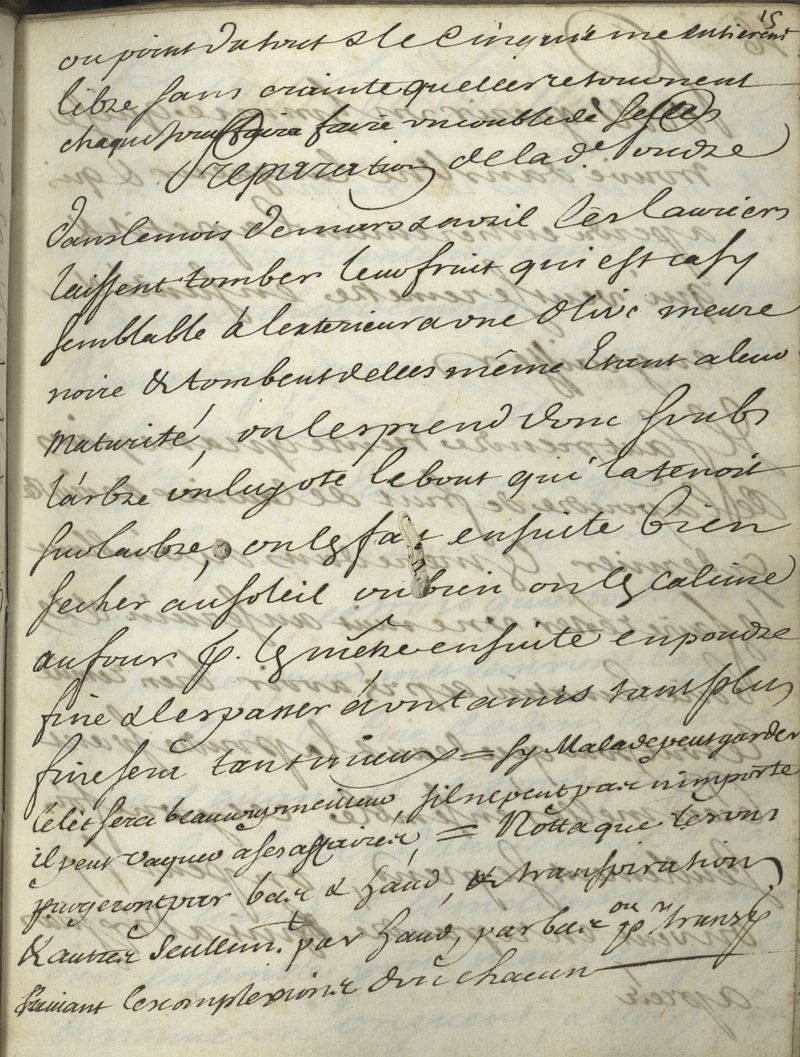 15
ou point du tout & le Cinquieme entierem.t
libre sans crainte quelles retournent
chaque jour faire un couble de selles
Preparation de lad.e Poudre
dans le mois de mars & avril les lauriers
laissent tomber leur fruit qui est casy
semblable a l'exterieur a vne olive meure
noire & tombent delles même Etant a leur
maturité, on les prend donc soubs
l'arbre on luy ote le bout qui la tenoit
sur l'arbre, on les fait ensuite bien
secher au soleil ou bien on les calcine
au four p. les mètre ensuite en poudre
fine & les passer dont amis tant plus
fine sera tant mieux = sy Malade peut garder
le lit sera beaucoup meilleur, sil ne peut pas n'importe
il peut vaquer a ses affaires = Notta que les uns
purgeront par bas & haud, & transpiration
& autres seullem.t par haud, par bas ou p.r transp
suivant les complexions d'un chacun